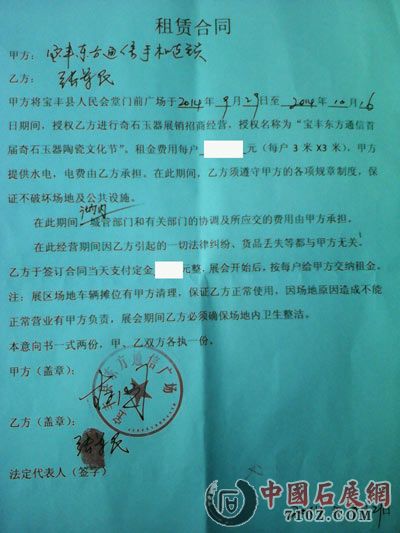 租赁合同
甲方：宝丰东方通信手机连锁
乙方：
甲方将宝丰县人民会堂门前广场于2014年9月29日至2014年10月16
日期间，授权乙方进行奇石玉器展销招商经营，授权名称为“宝丰东方通信首
届奇石玉器陶瓷文化节”。租金费用每户 元（每户 3 米 X3 米），甲方
提供水电，电费由乙方承担。在此期间，乙方须遵守甲方的各项规章制度，保
证不破坏场地及公共设施。
在此期间 城管部门和有关部门的协调及所应交的费用由甲方承担。
在此经营期间因乙方引起的一切法律纠纷、货品丢失等都与甲方无关。
乙方于签订合同当天支付定金 元整，展会开始后，按每户给甲方交纳租金。
注：展区场地车辆摊位有甲方清理，保证乙方正常使用，因场地原因造成不能
正常营业有甲方负责，展会期间乙方必须确保场地内卫生整洁。
本意向书一式两份，甲、乙双方各执一份。
甲方（盖章）：
宝丰东方通信广场
乙方（盖章）：
法定代表人（签字）
中國石展網
710Z.COM